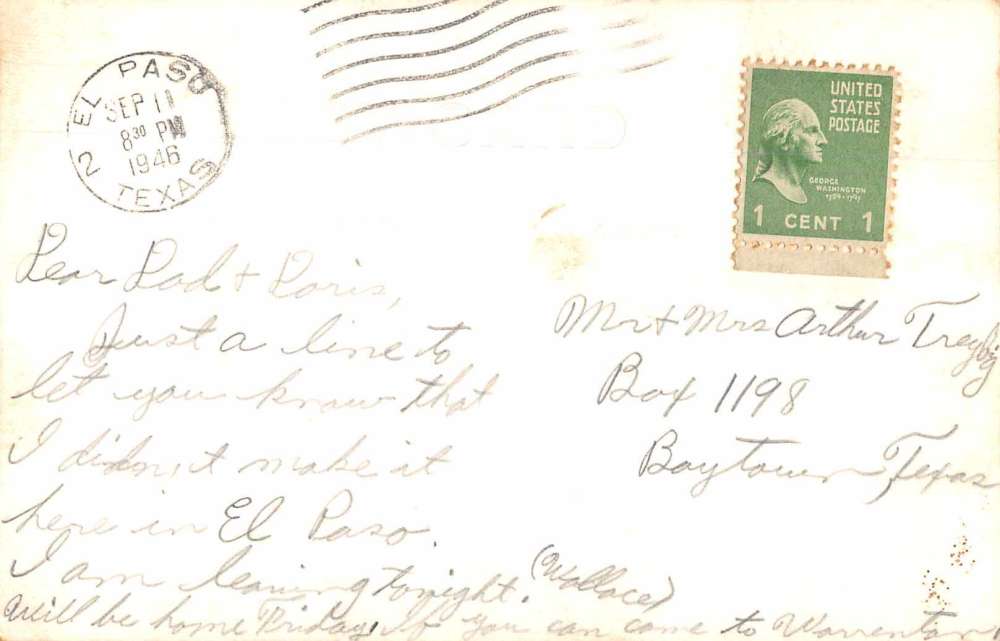 EL PASO
SEP 11
8 30 PM
1946
2 TEXAS
UNITED
STATES
POSTAGE
GEORGE
WASHINGTON
1 CENT 1
Dear Dad + Doris,
Just a line to
let you know that
I didn't make it
here in El Paso.
I am leaving tonight. (Wallace)
Will be home Friday, if you can come to Warrenton
Mr + Mrs Arthur
Box 1198
Baytown, Texas